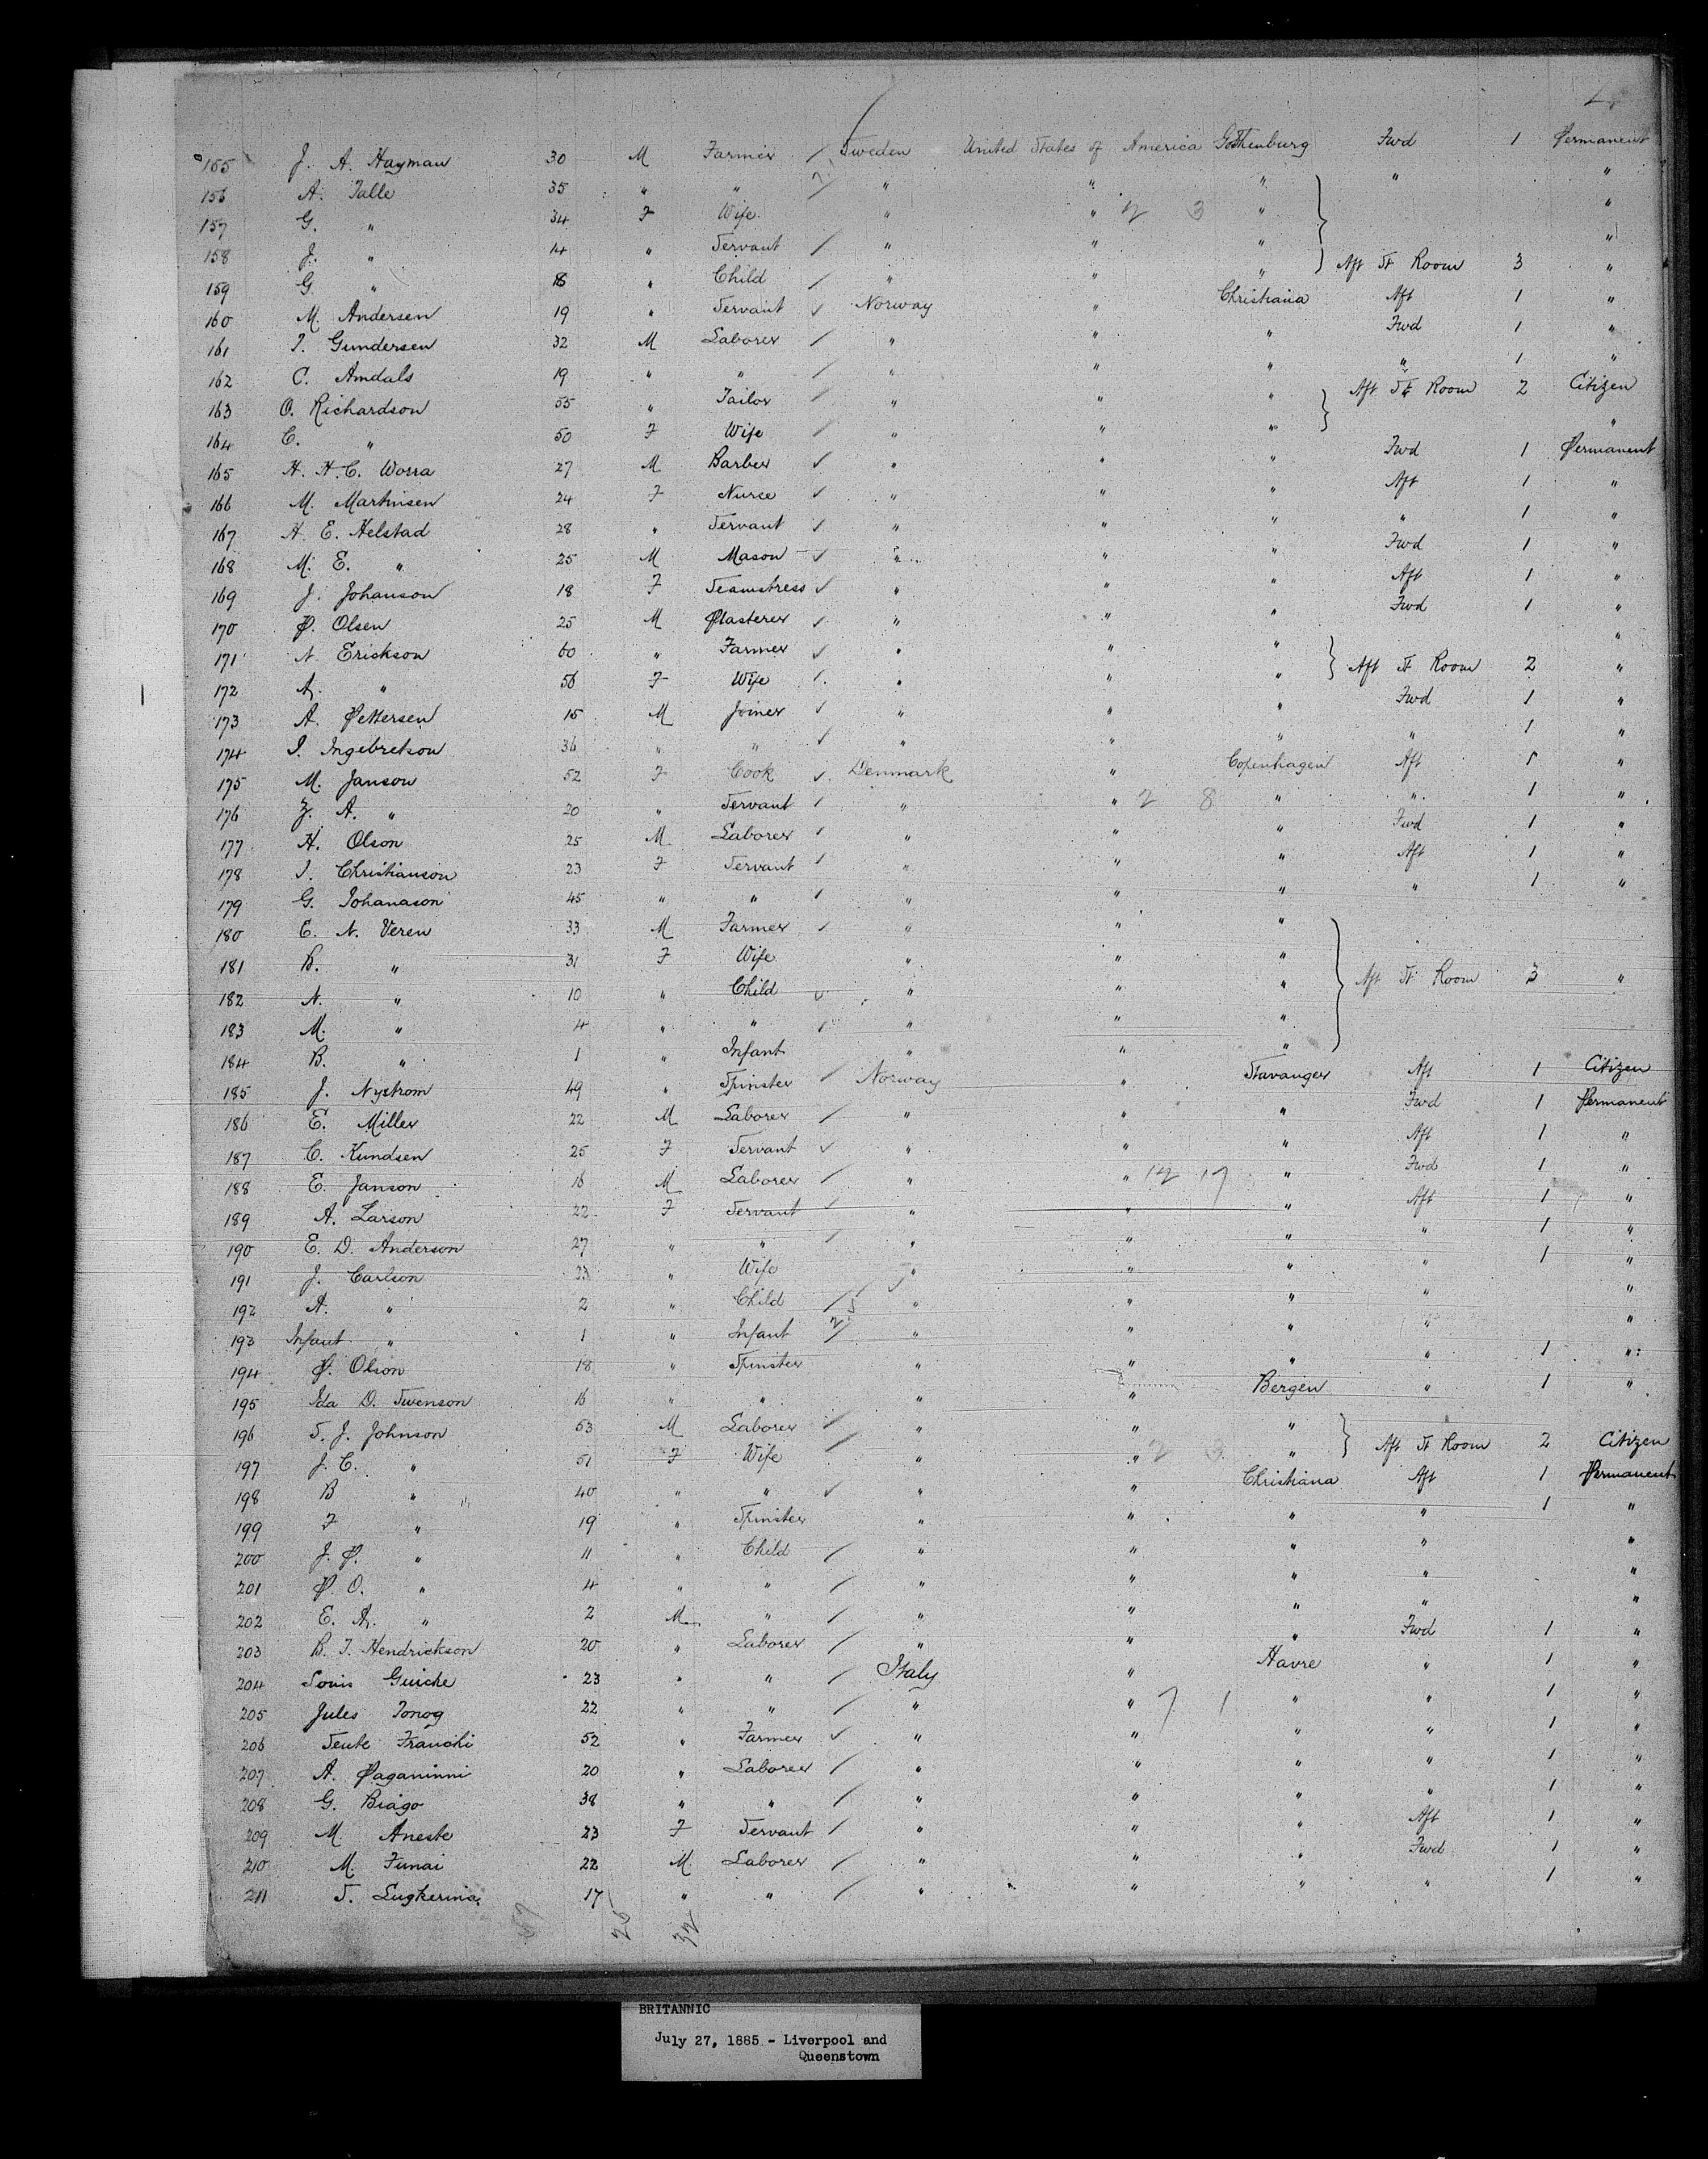 155 J. A. Hayman 30 M Farmer Sweden United States of America Gothenburg Fwd 1 Permanent
156 A. Talle 35 " " " " " " "
157 G. " 34 F Wife " " " "
158 J. " 14 " Servant " " " "
159 G. " " Child " " " Aft St Room 3 "
160 M. Andersen 19 " Servant Norway " Christiana Aft 1 "
161 T. Gundersen 32 M Laborer " " " Fwd 1 "
162 C. Amdals 19 " " " " " " 1 "
163 O. Richardson 55 " Tailor " " " Aft St Room 2 Citizen
164 C. " 50 F Wife " " " "
165 H. H. C. Worra 27 M Barber " " " Fwd 1 Permanent
166 M. Martinsen 24 F Nurse " " " Aft 1 "
167 H. E. Helstad 28 " Servant " " " " 1 "
168 M. E. " 25 M Mason " " " Fwd 1 "
169 J. Johanson 18 F Seamstress " " " Aft 1 "
170 P. Olsen 25 M Plasterer " " " Fwd 1 "
171 N. Erickson 60 " Farmer " " " "
172 A. " 56 F Wife " " " Aft St Room 2 "
173 A. Pettersen 15 M Joiner " " " Fwd 1 "
174 I. Ingebretson 36 " " " " " " 1 "
175 M. Janson 52 F Cook Denmark " Copenhagen Aft 1 "
176 Z. A. " 20 " Servant " " 2 8 " " 1 "
177 H. Olson 25 M Laborer " " " Fwd 1 "
178 I. Christianson 23 F Servant " " " Aft 1 "
179 G. Johanason 45 " " " " " " 1 "
180 E. N. Veren 33 M Farmer " " "
181 B. " 31 F Wife " " "
182 N. " 10 " Child " " " Aft St Room 3 "
183 M. " 4 " " " " "
184 B. " 1 " Infant " " "
185 J. Nystrom 49 " Spinster Norway " Stavanger Aft 1 Citizen
186 E. Miller 22 M Laborer " " " Fwd 1 Permanent
187 C. Kundsen 25 F Servant " " " Aft 1 "
188 E. Janson 16 M Laborer " " 12 17 " Fwd 1 "
189 A. Larson 22 F Servant " " " Aft 1 "
190 E. D. Anderson 27 " " " " " " 1 "
191 J. Carlson 23 " Wife " " " " 1 "
192 A. " 2 " Child " " " " "
193 Infant " 1 " Infant " " " " "
194 P. Olson 18 " Spinster " " " " 1 "
195 Ida D. Swenson 16 " " " " Bergen " 1 "
196 S. J. Johnson 53 M Laborer " " "
197 J. C. " 51 F Wife " " 2 3 " Aft St Room 2 Citizen
198 B " 40 " " " " Christiana Aft 1 Permanent
199 F " 19 " Spinster " " " " 1 "
200 J. P. " 11 " Child " " " " "
201 P. O. " 4 " " " " " " "
202 E. A. " 2 M " " " " " "
203 B. T. Hendrickson 20 " Laborer " " " Fwd 1 "
204 Louis Guiche 23 " " Italy " Havre " 1 "
205 Jules Tonog 22 " " " " 7 1 " " 1 "
206 Franchi 52 " Farmer " " " " 1 "
207 A. Paganinni 20 " Laborer " " " " 1 "
208 G. Biago 38 " " " " " " 1 "
209 M. Aneste 23 F Servant " " " Aft 1 "
210 M. Funai 22 M Laborer " " " Fwd 1 "
211 17 " " " " " " 1 "
25 32
BRITANNIC
July 27, 1885 - Liverpool and
Queenstown